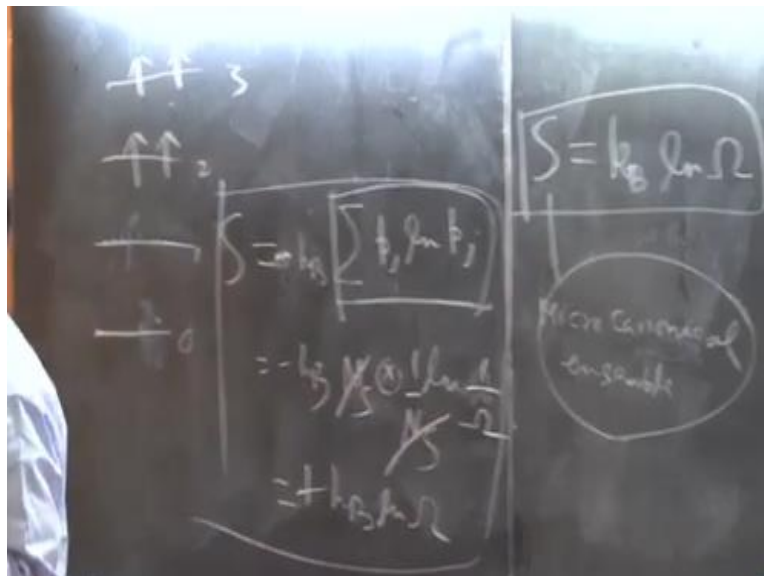 ↑↑ 3
↑↑ 2
1
0
S = -k_B Σ p_i ln p_i
= -k_B Ω ⊗ 1/Ω ln 1/Ω
= + k_B ln Ω
S = k_B ln Ω
Micro Canonical
ensamble